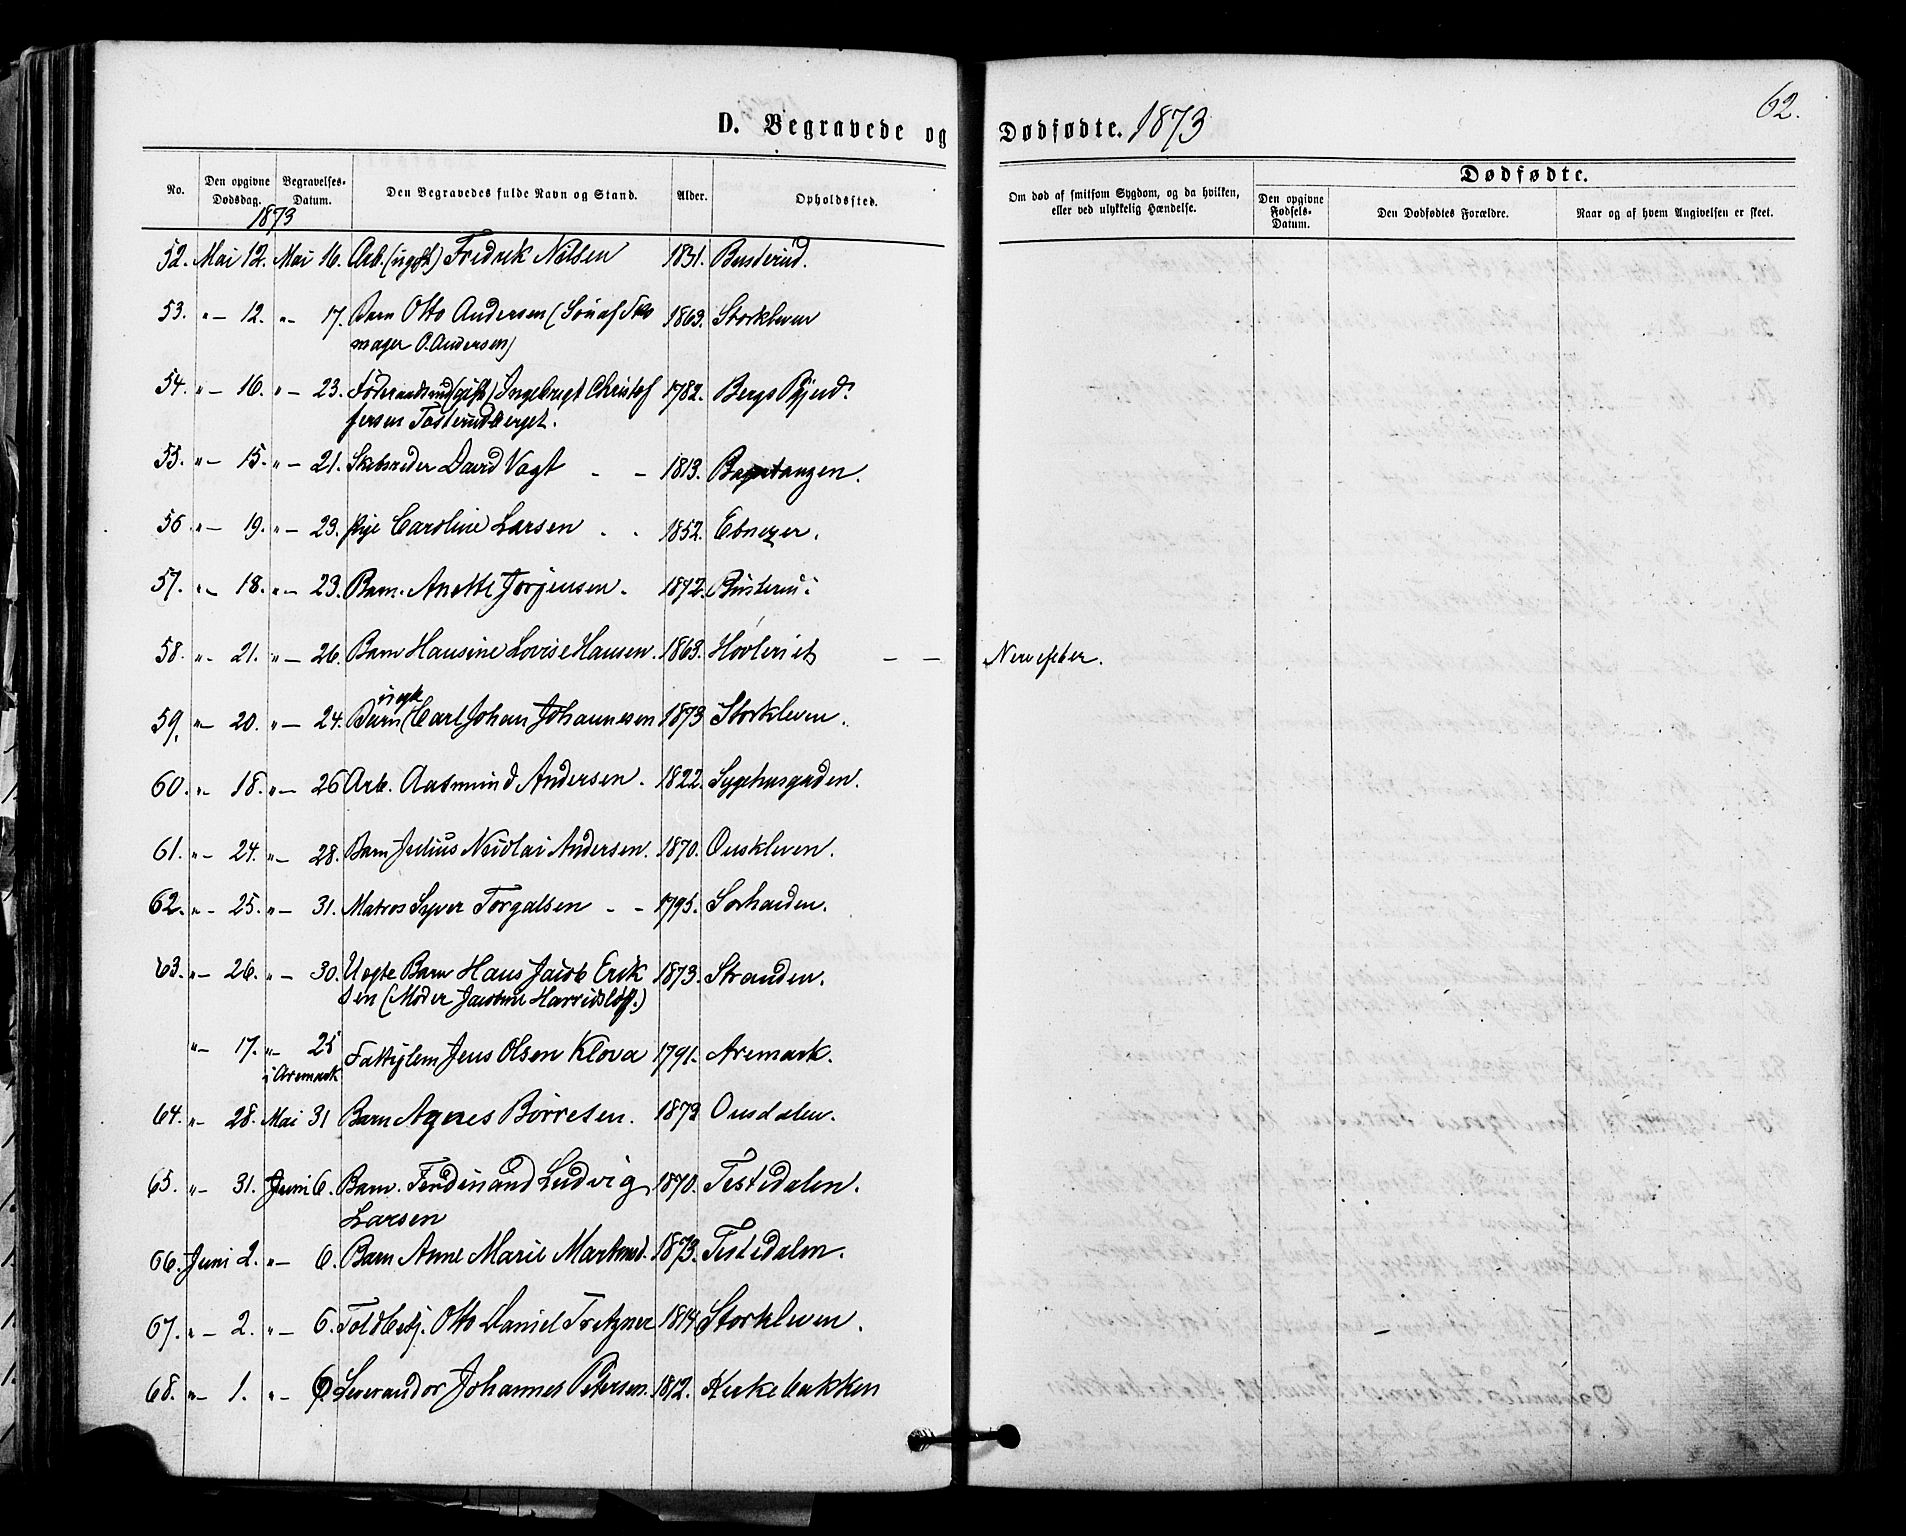 62.
D. Begravede og Dødfødte. 1873
No. Den opgivne Dødsdag. Begravelses-Datum. Den Begravedes fulde Navn og Stand. Alder. Opholdssted. Om død af smitsom Sygdom, og da hvilken, eller ved ulykkelig Hændelse. Dødfødte.
Den opgivne Fødsels-Datum. Den Dødfødtes Forældre. Naar og af hvem Angivelsen er skeet.
1873
52. Mai 12. Mai 16. Arb. (ugft) Fredrik Nilsen 1831. Busterud.
53. " — 12. " — 17. Barn Otto Andersen (Søn af Sko
mager O. Andersen) 1863. Storkleven
54. " — 16. " — 23. Føderaadsmd (gift) Ingebrigt Christof
fersen Tosterudberget. 1782. Bergs Pgjeld.
55. " — 15. " — 21. Skibsreder David Vogt - - 1813. Bagtangen.
56 " — 19. " — 23. Pige Caroline Larsen . . 1852. Ebnezer.
57. " — 18. " — 23. Barn. Anette Jørgensen. 1872. Busterud
58. " — 21. " — 26. Barn Hansine Lovise Hansen. 1863. Høvleriet — — Nervefeber.
59. " — 20. " — 24. Barn (uægte) Carl Johan Johannesen 1873 Storkleven.
60. " — 18. " — 26 Arb. Aasmund Andersen. 1822. Sygehusgaden.
61. " — 24. " — 28. Barn Julius Nicolai Andersen. 1870. Ouskleven.
62. " — 25. " — 31. Matros Syver Torgalsen - - 1795. Sørhauden.
63. " — 26. " — 30. Uægte Barn Hans Jacob Erik
sen (Moder Jacobine) 1873. Stranden.
" — 17. " — 25 i Aremark Fattiglem Jens Olsen Kløva 1791. Aremark.
64. " — 28. Mai 31 Barn Agnes Børresen. 1873 Ousdalen.
65. " — 31. Juni 6. Barn. Ferdinand Ludvig
Larsen 1870. Tistedalen.
66. Juni 2. " — 6. Barn Anne Marie 1873. Tistedalen.
67. " — 2. " — 6. Toldbetj. Otto Daniel Tretzner 1814 Storkleven.
68. " — 1. " — 6. Leverandør Johannes Petersen. 1812. Kirkebakken